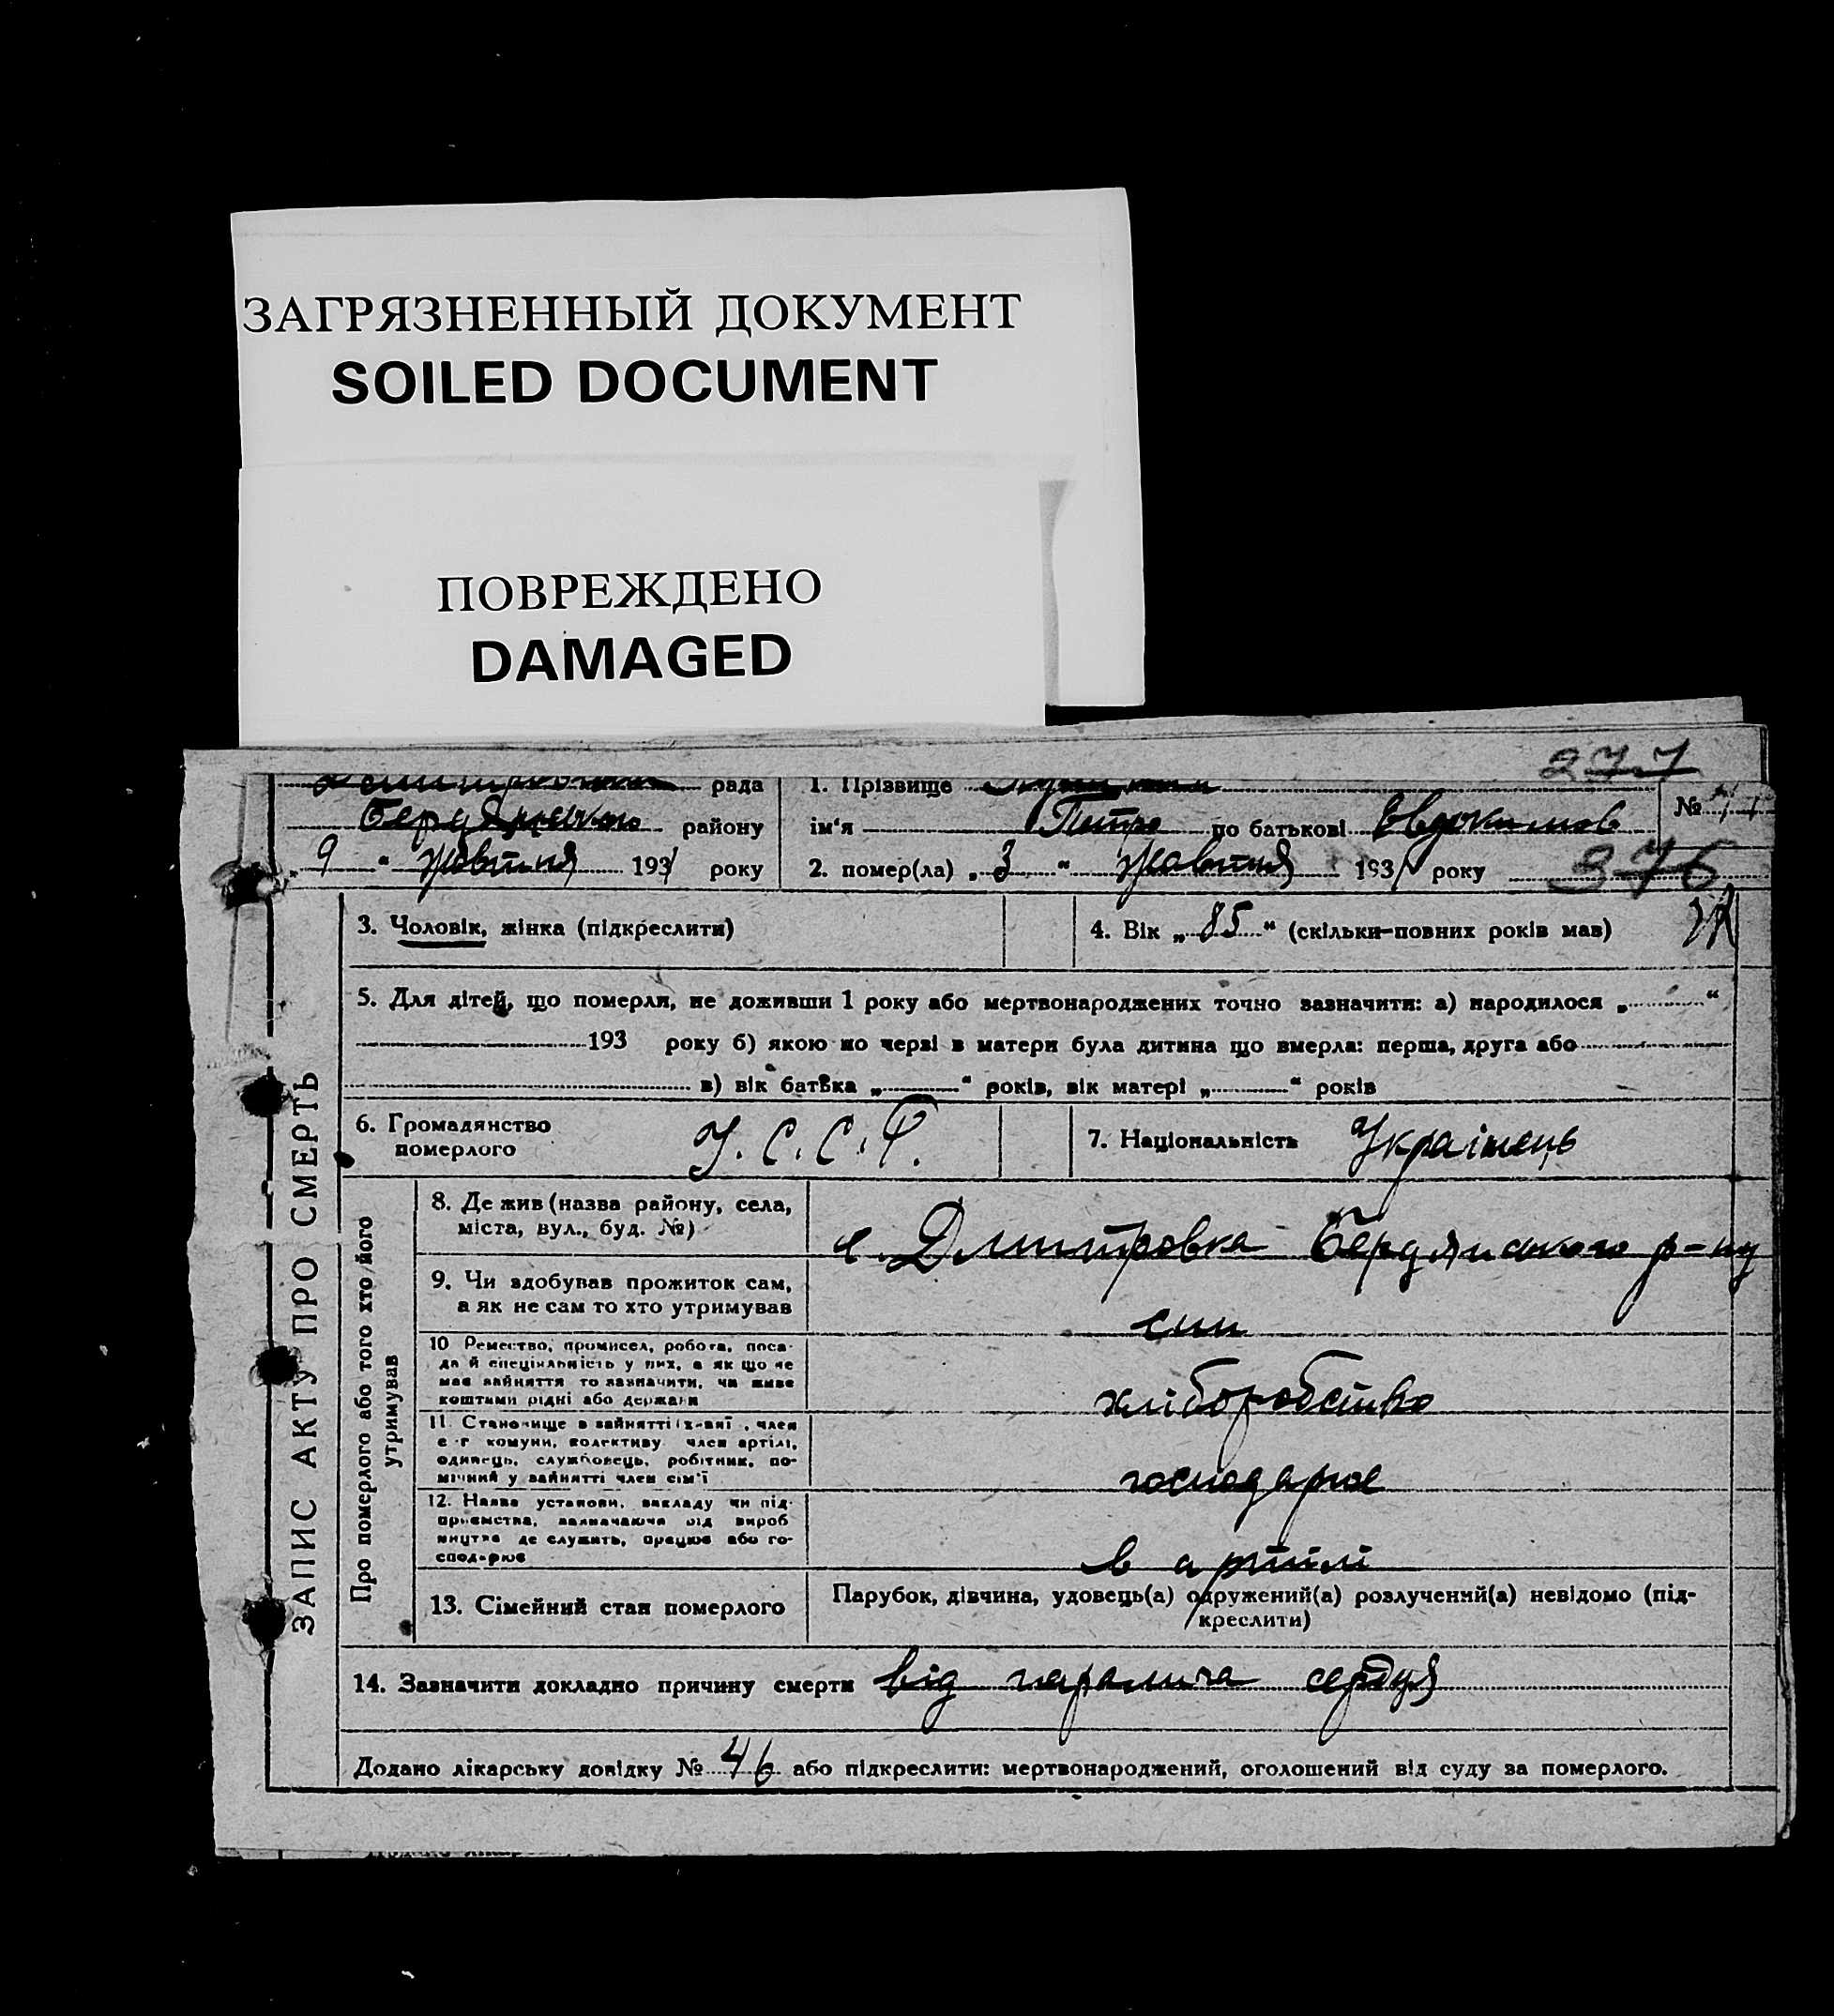 ЗАГРЯЗНЕННЫЙ ДОКУМЕНТ
SOILED DOCUMENT
ПОВРЕЖДЕНО
DAMAGED
277
рада 1. Прізвище
району ім'я Петро по батькові Євдокимов №
9 " жовтня 1931 року 2. помер(ла) „ 3 " жовтня 1931 року 376
3. Чоловік, жінка (підкреслити) 4. Вік „ 85 “ (скільки-повних років мав)
5. Для дітей, що померли, не доживши 1 року або мертвонароджених точно зазначити: а) народилося „ “
193 року б) якою по черзі в матери була дитина що вмерла: перша, друга або
в) вік батька „ “ років, вік матері „ “ років
6. Громадянство
померлого
У.С.С.Р.
7. Національність Українець
ЗАПИС АКТУ ПРО СМЕРТЬ
Про померлого або того хто його
утримував
8. Де жив (назва району, села,
міста, вул., буд. №)
с. Дмитровка Бердянського р-ну
9. Чи здобував прожиток сам,
а як не сам то хто утримував
син
10 Ремество, промисел, робота, поса-
да й спеціяльність у них, а як що не
має зайняття то зазначити, чи живе
коштами рідні або держави
хліборобство
11. Становище в зайнятті член
с-г комуни, колективу член артілі,
одинець, службовець, робітник, по-
мічний у зайнятті член сім'ї
господарює
12. Назва установи, закладу чи під-
приємства, зазначаючи рід вироб
ництва де служить, працює або го-
сподарює
в артілі
13. Сімейний стан померлого
Парубок, дівчина, удовець(а) одружений(а) розлучений(а) невідомо (під-
креслити)
14. Зазначити докладно причину смерти від параліча серця
Додано лікарську довідку № 46 або підкреслити: мертвонароджений, оголошений від суду за померлого.